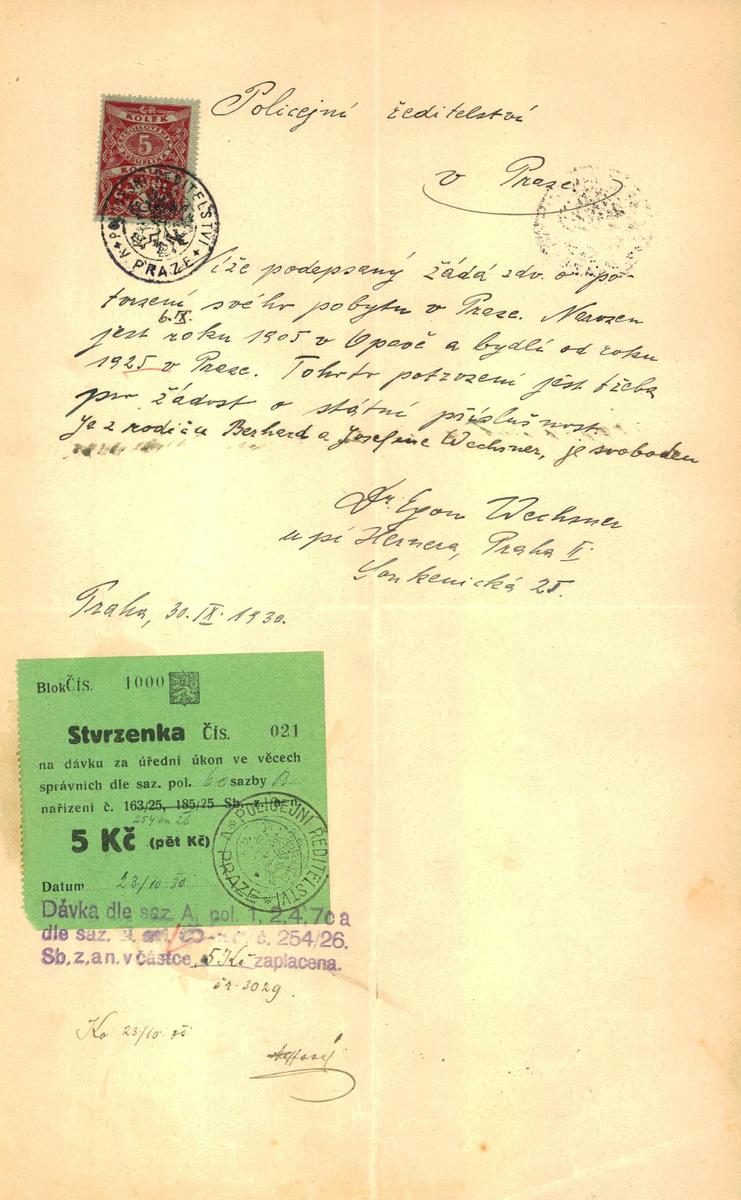 Policejní ředitelství
v Praze.
ČR
KOLEK
5
POLICEJNÍ ŘEDITELSTVÍ
V PRAZE
íže podepsaný žádá zdv. o po-
tvrzení svého pobytu v Praze. Narozen
6.IX.
jest roku 1905 v Opavě a bydlí od roku
1925 v Praze. Tohoto potvrzení jest třeba
pro žádost o státní příslušnost.
Je z rodičů Berhard a Josefine Wechsner, je svoboden
Dr. Egon Wechsner
u pí Hernera, Praha II.
Soukenická 25.
Praha, 30. IX. 1930.
Blok Čís. 1000
Stvrzenka Čís. 021
na dávku za úřední úkon ve věcech
správních dle saz. pol. 60 sazby B
nařízení č. 163/25, 185/25 Sb. z. a n.
254 ex 26
5 Kč (pět Kč)
POLICEJNÍ ŘEDITELSTVÍ
PRAZE
Datum 23/10 30
Dávka dle saz. A. pol. 1, 2, 4, 7c a
dle saz. č. 254/26.
Sb. z. a n. v částce 5 Kč zaplacena.
čř. 3029.
Ko 23/10 30